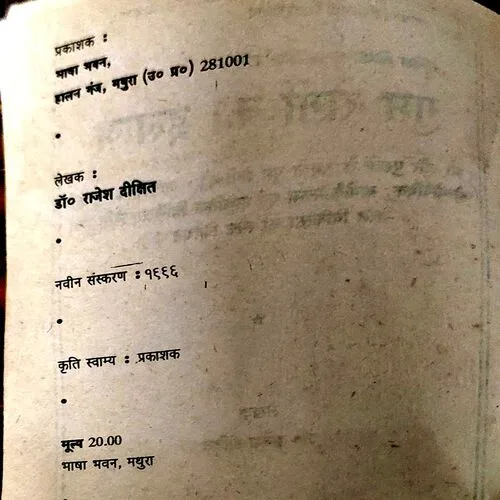 प्रकाशक :
भाषा भवन,
हालन गंज, मथुरा (उ० प्र०) 281001
•
लेखक :
डॉ० राजेश दीक्षित
•
नवीन संस्करण : १९९६
•
कृति स्वाम्य : प्रकाशक
•
मूल्य 20.00
भाषा भवन, मथुरा